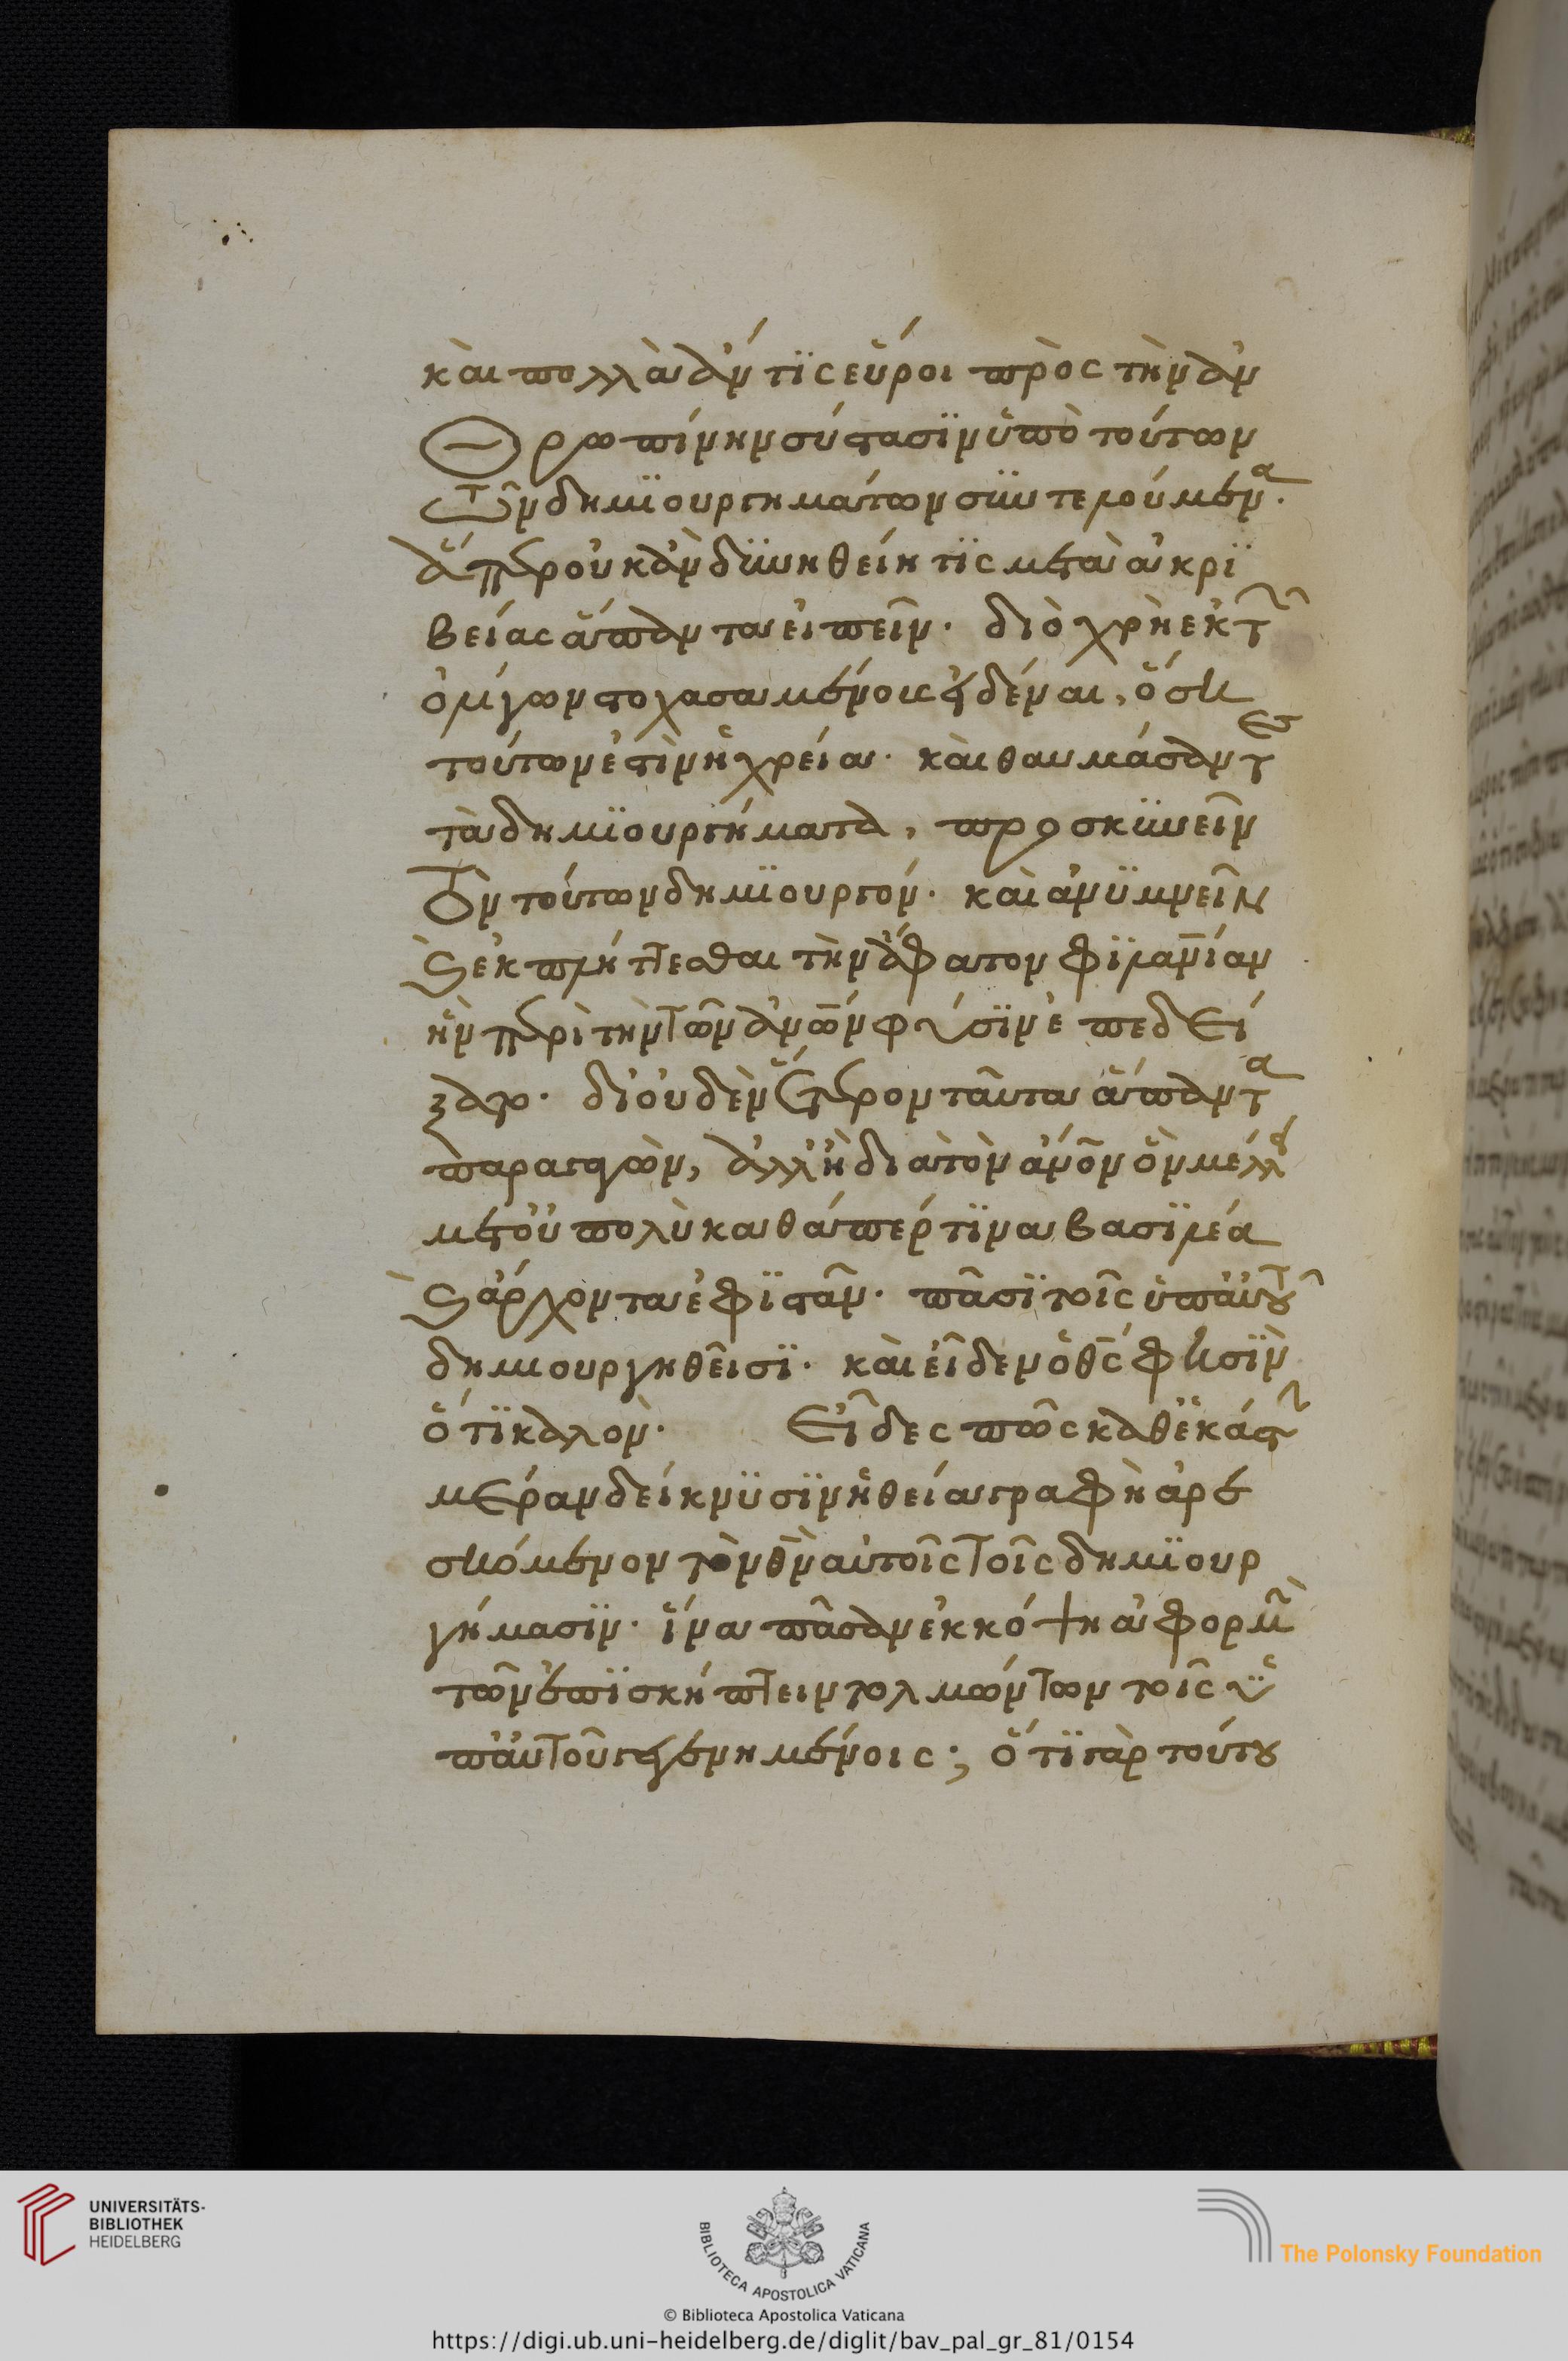 κὰι πολλὰ ἄν τϊς εὕροι πρὸς τὴν ἀν
θρωπίνην σύστασϊν ὑπὸ τούτων
τῶν δημϊουργημάτων σϋντελούμενα.
ἅπερ οὐκ ἀν δϋνηθείη τϊς μετὰ ἀκρϊ
βείας ἅπαντα ειπεῖν. διὸ χρὴ εκ τῶν
ὀλίγων στοχασαμένοις ἰδέναι, ὅση
τούτων ἐστὶν ἡ χρεία. κὰι θαυμάσαντες
τὰ δημϊουργήματα, προσκϋνεῖν
τὸν τούτων δημϊουργόν. καὶ ἀνϋμνεῖν
κὰι ἐκπλήττεσθαι τὴν ἄφατον φϊλανίαν
ἣν περὶ τὴν τῶν ἀνων φύσϊν ἐπεδεί
ξατο. δϊοὐδὲν ἕτερον ταῦτα ἅπαντα
παραγαγὼν, ἀλλ' ἢ διὰ τὸν ἀνον ὃν μέλλει
μετοὐπολὺ καθάπέρ τϊνα βασϊλέα
κὰι ἄρχοντα ἐφϊστᾶν. πᾶσϊ τοῖς ὑπ' ἀυτοῦ
δημιουργηθεῖσϊ. κὰι εἶδεν ὁ θς φησϊν
ὅτϊ καλὸν. Εἶδες πῶς καθ' ἑκάστην
μεραν δείκνϋσϊν ἡ θεία γραφὴ ἀρε
σκόμενον τὸν θν αὐτοῖς τοῖς δημϊουρ
γήμασϊν. ἵνα πᾶσαν ἐκκόψη ἀφορμὴν
τῶν ἐπϊσκήπτειν τολμώντων τοῖς ὑ
π' ἀυτοῦ γεγενημένοις; ὅτϊ γὰρ τούτου
UNIVERSITÄTS-
BIBLIOTHEK
HEIDELBERG
BIBLIOTECA APOSTOLICA VATICANA
The Polonsky Foundation
© Biblioteca Apostolica Vaticana
https://digi.ub.uni-heidelberg.de/diglit/bav_pal_gr_81/0154